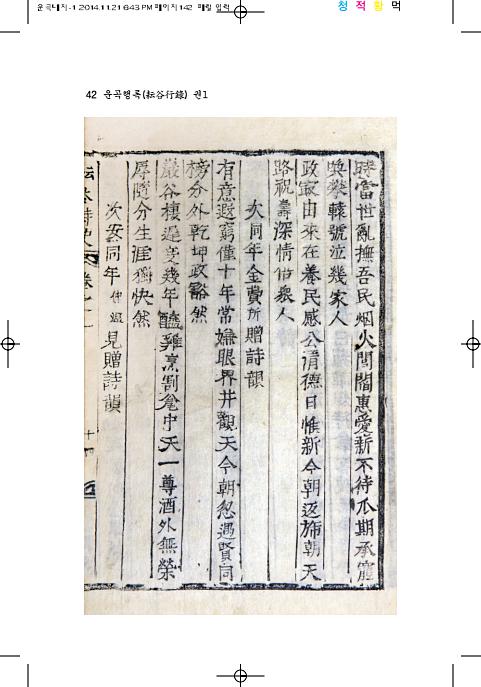 운곡내지-1 2014.11.21 6:43 PM 페이지142 매킬 입력
청 적 황 먹
42 운곡행록(耘谷行錄) 권1
時當世亂撫吾民烟火閭閻惠愛新不待瓜期承寵
喚攀轅號泣幾家人
政寂由來在養民感公淸德日惟新今朝返旆朝天
路祝壽深情倍衆人
次同年金費所贈詩韻
有意遐窮僅十年常嫌眼界井觀天今朝忽遇賢同
榜分外乾坤政豁然
巖谷棲遲歲幾年醯雞烹割瓮中天一尊酒外無榮
辱隨分生涯獨快然
次安同年仲溫見贈詩韻
耘谷詩史卷之二
十